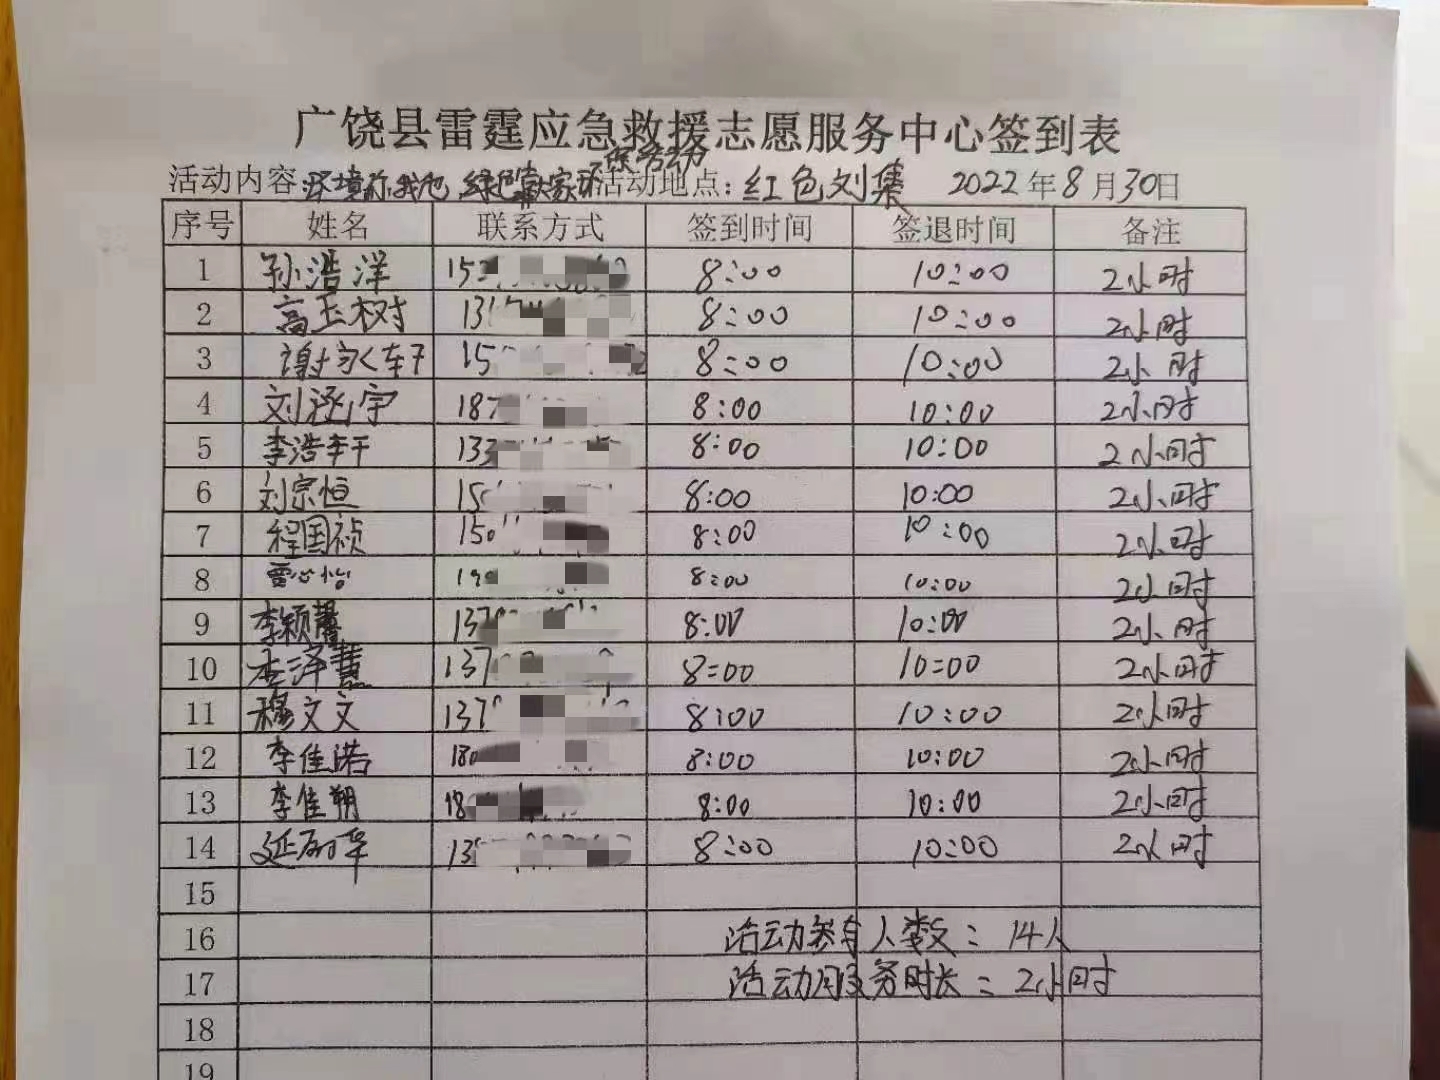 广饶县雷霆应急救援志愿服务中心签到表
活动内容:环境你我他,绿色 大家 环保劳动 活动地点:红色刘集 2022年8月30日
序号 姓名 联系方式 签到时间 签退时间 备注
1 孙浩洋 15 8:00 10:00 2小时
2 高玉树 13 8:00 10:00 2小时
3 谢永轩 15 8:00 10:00 2小时
4 刘涵宇 187 8:00 10:00 2小时
5 李浩轩 133 8:00 10:00 2小时
6 刘宗恒 150 8:00 10:00 2小时
7 程国祯 150 8:00 10:00 2小时
8 心怡 8:00 10:00 2小时
9 李颖馨 137 8:00 10:00 2小时
10 李泽慧 137 8:00 10:00 2小时
11 穆文文 137 8:00 10:00 2小时
12 李佳诺 180 8:00 10:00 2小时
13 李佳朔 18 8:00 10:00 2小时
14 延 华 13 8:00 10:00 2小时
15
16 活动参与人数:14人
17 活动服务时长:2小时
18
19